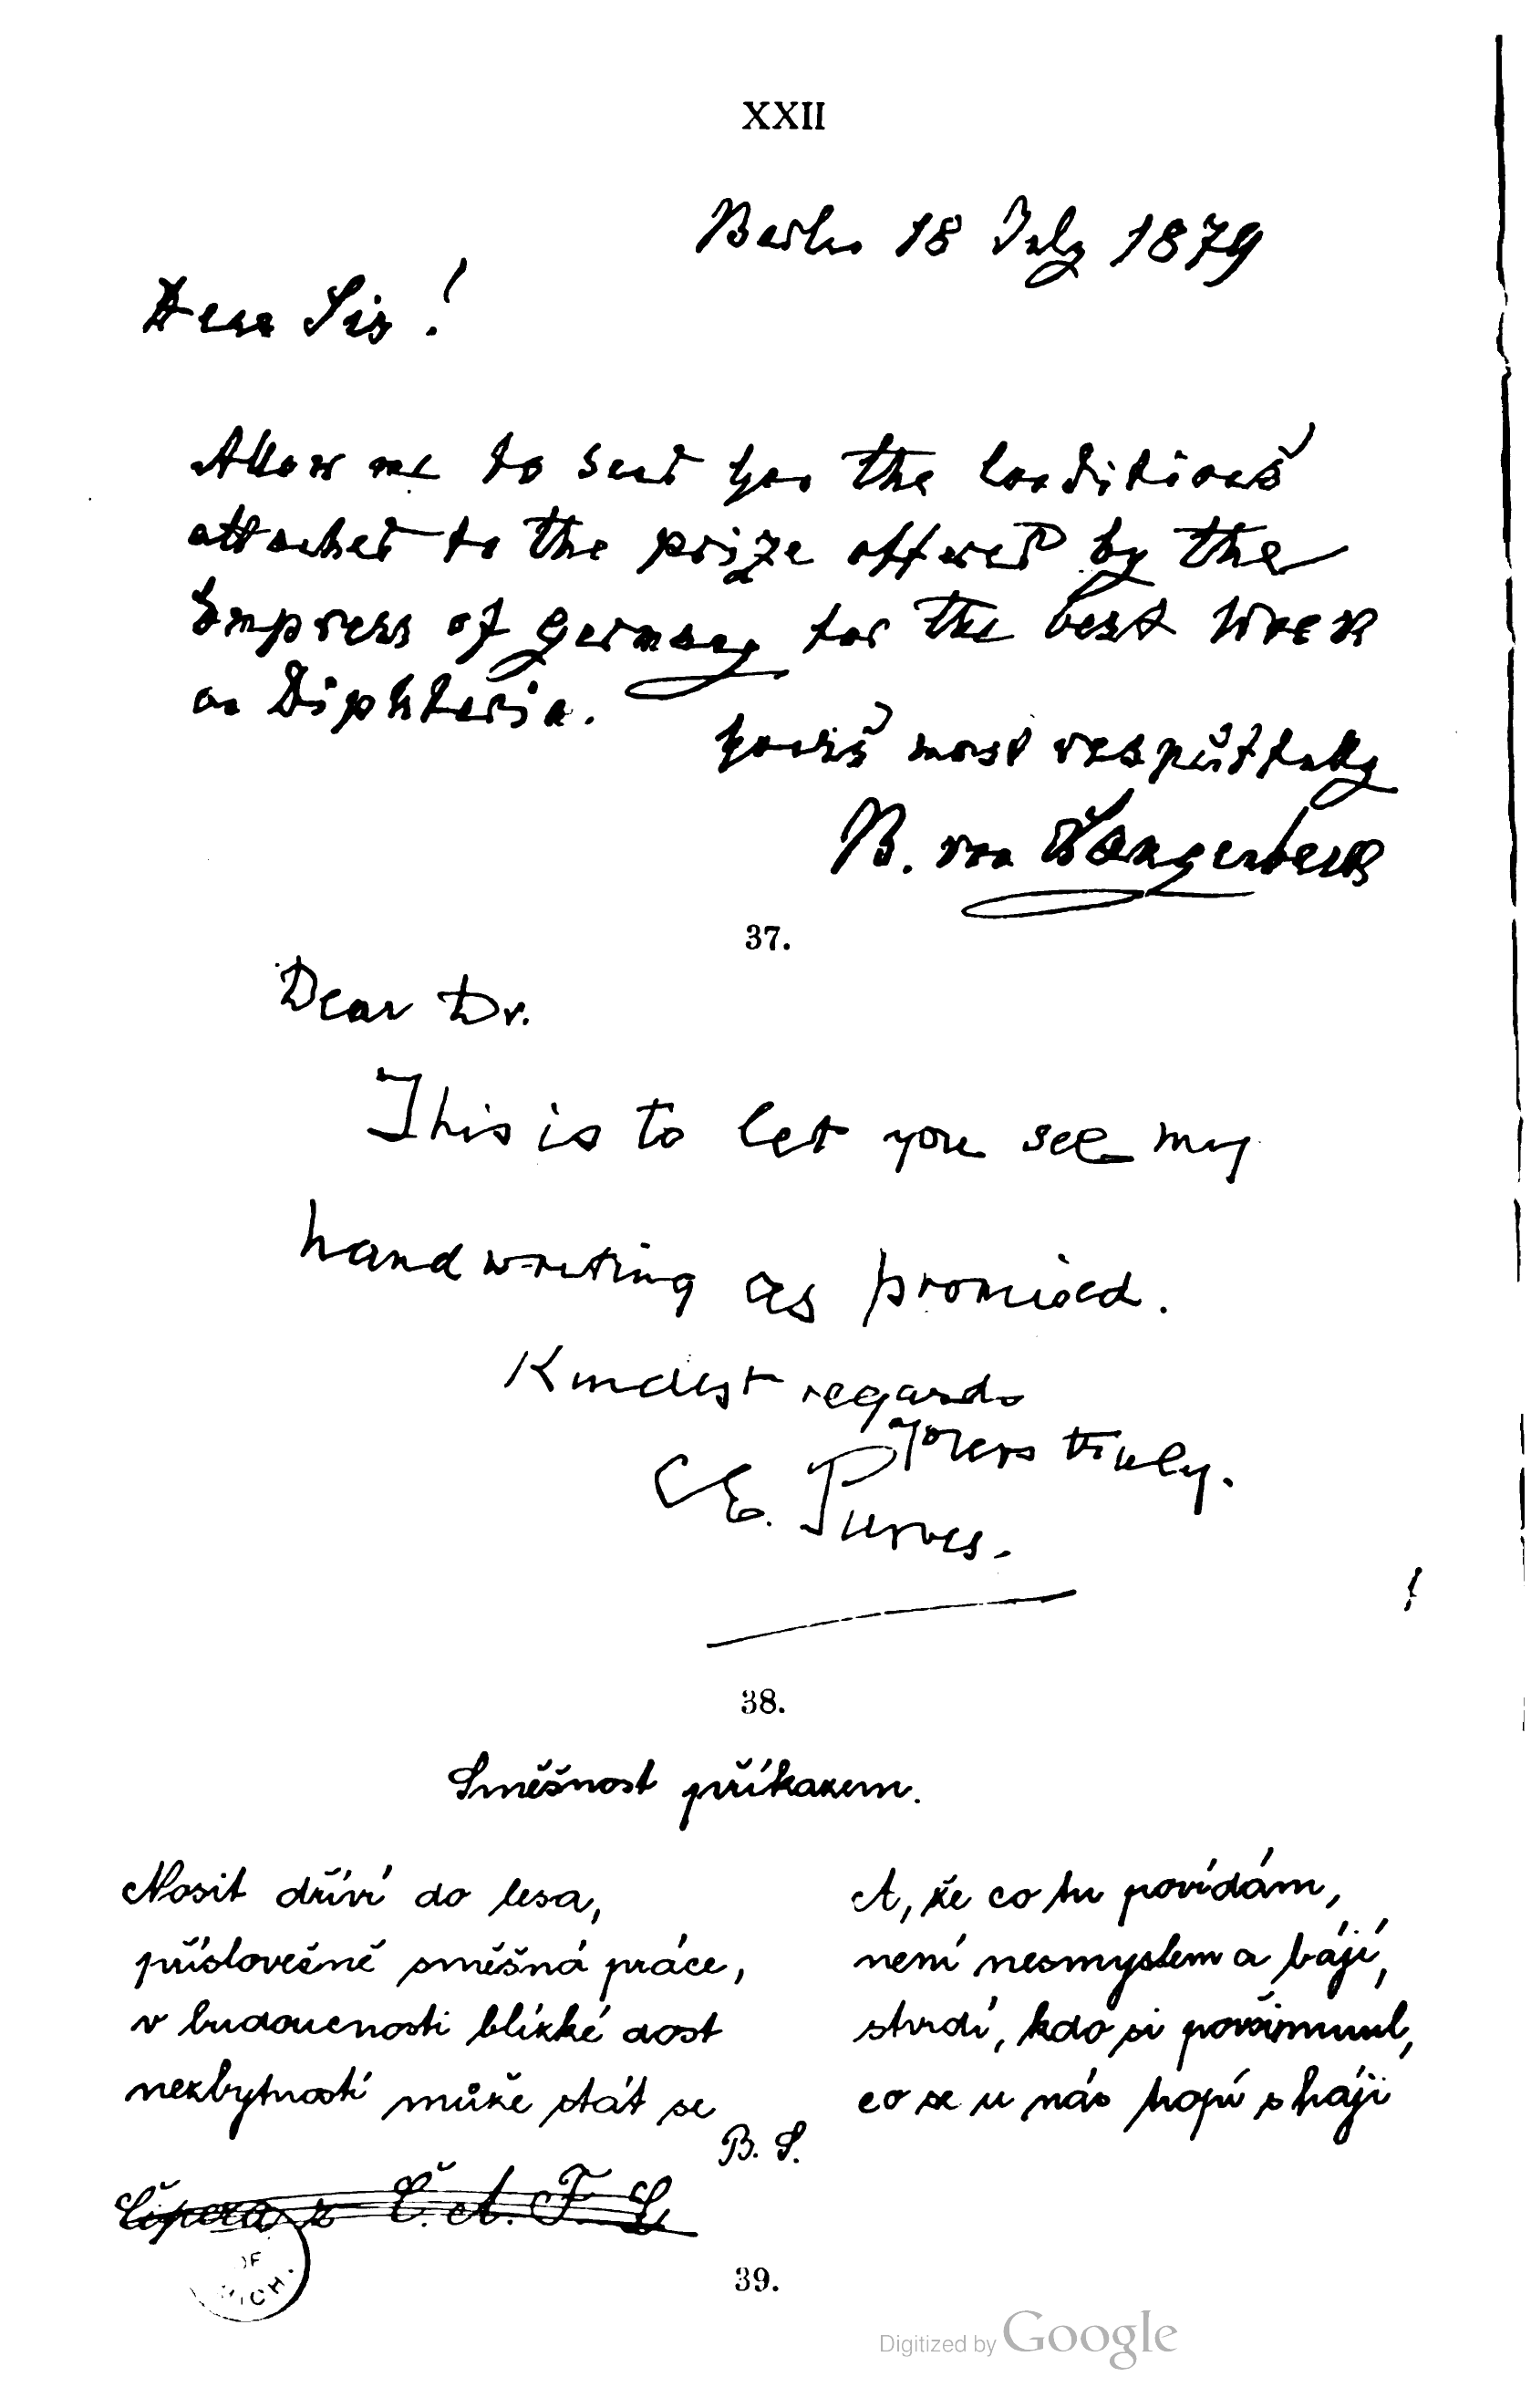 XXII
Berlin 18 July 1879
Dear Sir!
Allow me to send you the Conditions
attached to the prize offered by the
Empress of Germany for the best Work
on Diphteria.
Yours most respectfully
B. von Langenbeck
37.
Dear Dr.
This is to let you see my
handwriting as promised.
Kindest regards
Yours truly.
CE. Purves.
38.
Směšnost příkazem.
Nosit dříví do lesa,
příslovečně směšná práce,
v budoucnosti blízké dost
nezbytností může stát se
A, že co tu povídám,
není nesmyslem a bájí,
stvrdí, kdo si povšimnul,
co se u nás tropí s háji
B. S.
z Č. A. F. L
OF
MICH.
39.
Digitized by Google